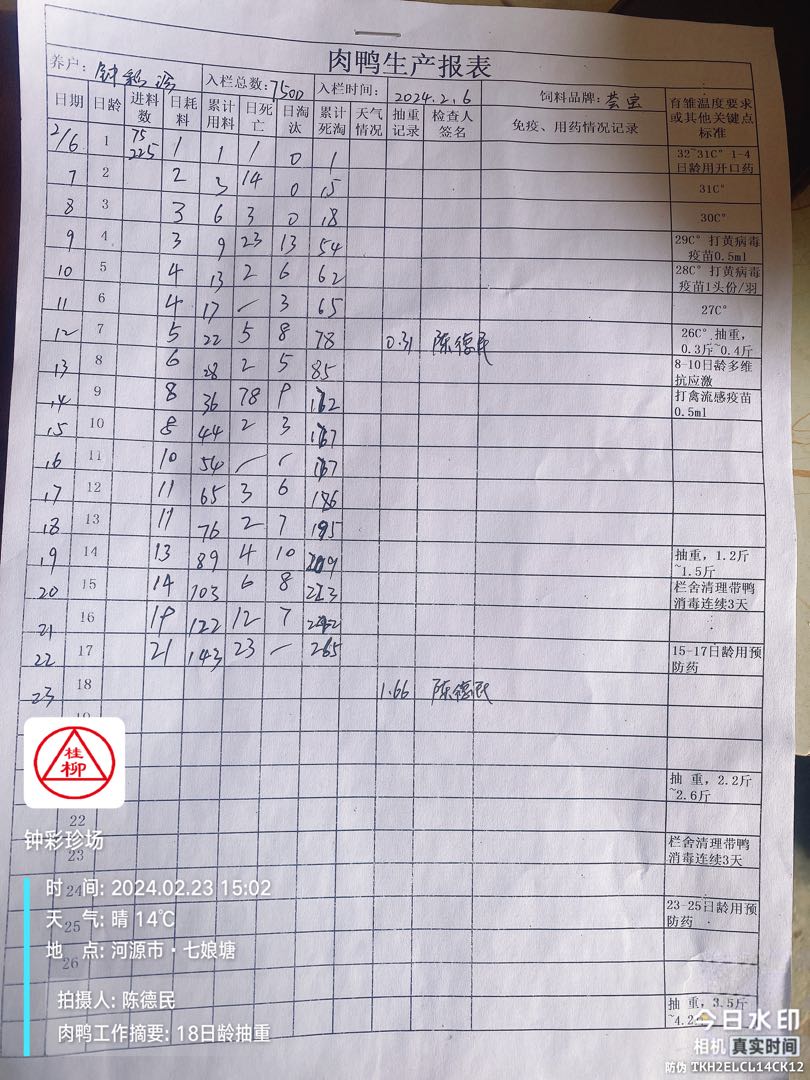 肉鸭生产报表
养户: 钟彩珍 入栏总数: 7500 入栏时间: 2024.2.6 饲料品牌: 芸宝 育雏温度要求或其他关键点标准
日期 日龄 进料数 日耗料 累计用料 日死亡 日淘汰 累计死淘 天气情况 抽重记录 检查人签名 免疫、用药情况记录
2/6 1 75 225 1 1 1 0 1 32~31C° 1-4日龄用开口药
7 2 2 3 14 0 15 31C°
8 3 3 6 3 0 18 30C°
9 4 3 9 23 13 54 29C° 打黄病毒疫苗0.5ml
10 5 4 13 2 6 62 28C° 打黄病毒疫苗1头份/羽
11 6 4 17 - 3 65 27C°
12 7 5 22 5 8 78 0.31 陈德民 26C° 抽重,0.3斤~0.4斤
13 8 6 28 2 5 85 8-10日龄多维抗应激
14 9 8 36 78 9 打禽流感疫苗0.5ml
15 10 8 44 2 3
16 11 10 54 - -
17 12 11 65 3 6
18 13 11 76 2 7
19 14 13 89 4 10 抽重,1.2斤~1.5斤
20 15 14 103 6 8 栏舍清理带鸭消毒连续3天
21 16 19 122 12 7
22 17 21 143 23 - 265 15-17日龄用预防药
23 18 1.66 陈德民
桂柳
抽重,2.2斤~2.6斤
22
钟彩珍场
23 栏舍清理带鸭消毒连续3天
时 间: 2024.02.23 15:02
24
天 气: 晴 14℃
25 23-25日龄用预防药
地 点: 河源市·七娘塘
26
拍摄人: 陈德民
抽重,3.5斤~4.2
肉鸭工作摘要: 18日龄抽重
今日水印
相机 真实时间
防伪 TKH2ELCL14CK12